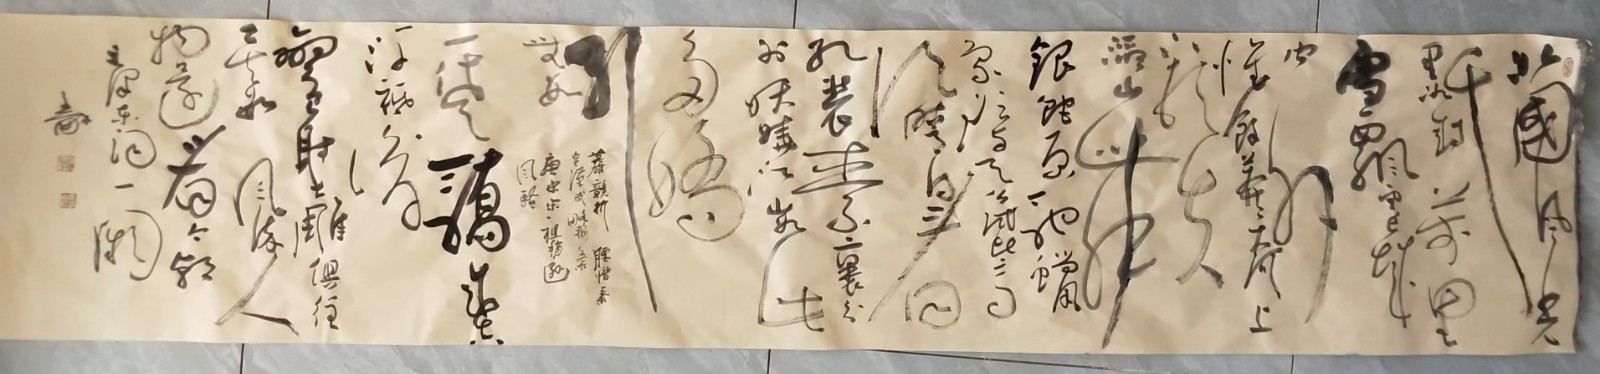 北國风光
千
里冰封 萬里
雪飘 望长城
内外
惟餘莽莽 大河上
下顿失
滔滔 山舞
銀蛇 原驰蠟
象 欲与天公试比高
须晴日 看
红裝素裹 分
外妖娆 江山如此
多嬌
引
無数
英雄競折腰 惜秦
皇漢武略输文采
唐宗宋祖稍遜
风騷
一代天驕 成吉
思汗 只识
彎弓射大雕 俱往
矣 数风流人
物還看今朝
毛泽东词一阕